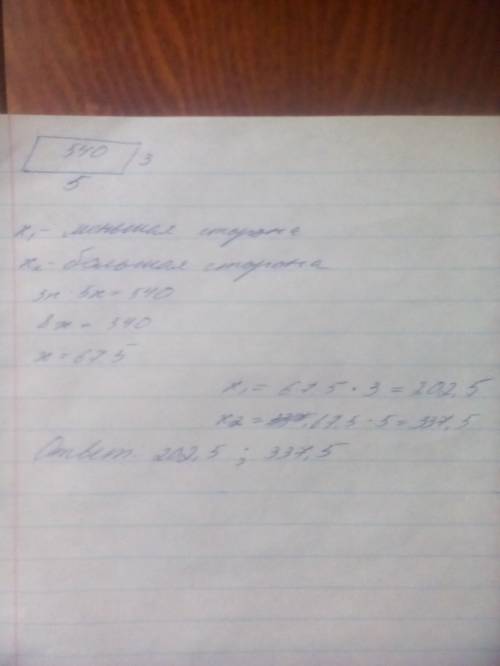 540 3
5
x₁ - меньшая сторона
x₂ - большая сторона
3x · 5x = 540
8x = 540
x = 67,5
x₁ = 67,5 · 3 = 202,5
x₂ = 67,5 · 5 = 337,5
Ответ. 202,5 ; 337,5